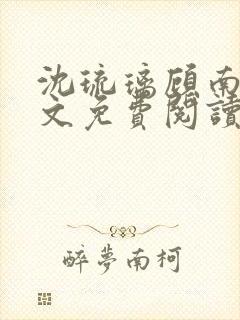 沈琉璃顾南
文免費閱讀
醉夢南柯